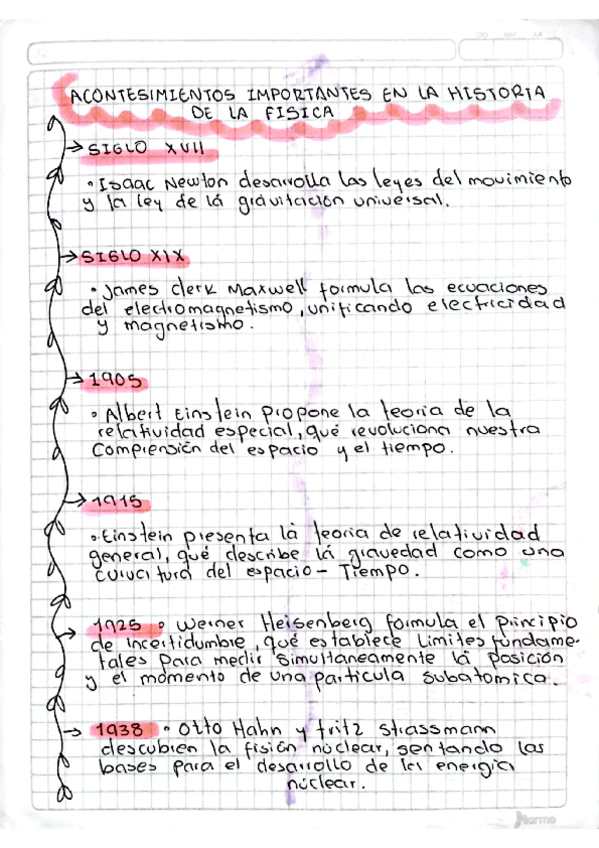 ACONTESIMIENTOS IMPORTANTES EN LA HISTORIA
DE LA FISICA
SIGLO XVII
• Isaac Newton desarrolla las leyes del movimiento
y la ley de la gravitación universal.
SIGLO XIX
• James clerk Maxwell formula las ecuaciones
del electromagnetismo, unificando electricidad
y magnetismo.
1905
• Albert Einstein propone la teoria de la
relatividad especial, qué revoluciona nuestra
comprensión del espacio y el tiempo.
1915
• Einstein presenta la teoria de relatividad
general, qué describe lá gravedad como una
curvatura del espacio - Tiempo.
1925 • Werner Heisenberg formula el principio
de incertidumbre, qué establece limites fundame-
tales para medir simultaneamente lá posición
y el momento de una particula subatomica.
1938 • Otto Hahn y fritz strassmann
descubren la fisión nuclear, sentando las
bases para el desarrollo de la energia
núclear.
Norma